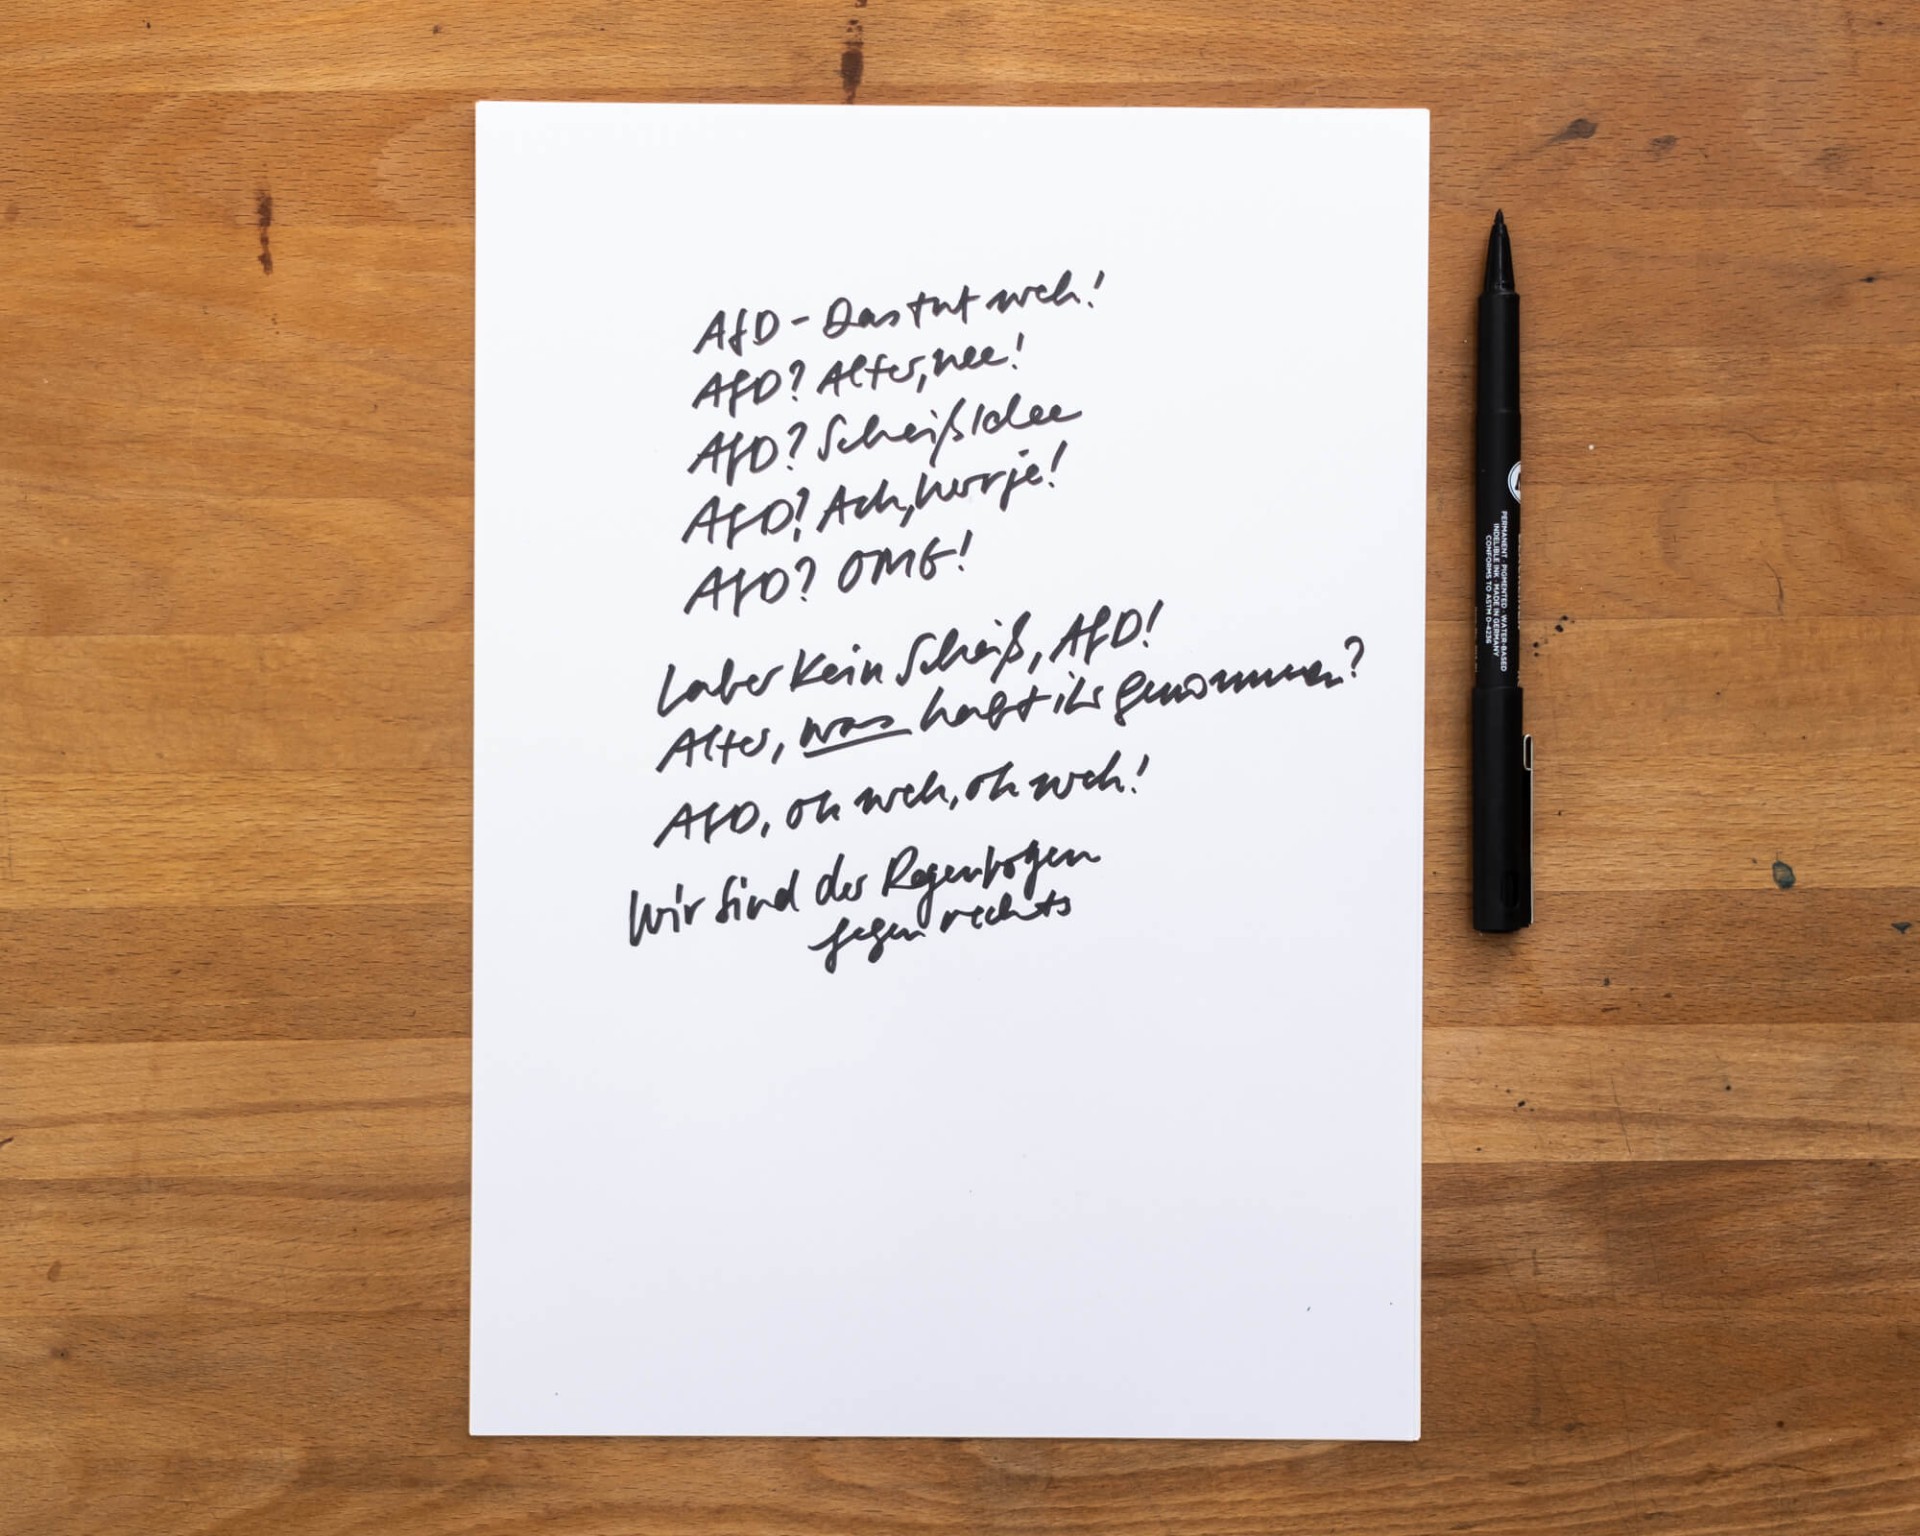 AfD - Das tut weh!
AfD? Alter, nee!
AfD? Scheiß Idee
AfD? Ach, herrje!
AfD? OMG!
Laber kein Scheiß, AfD!
Alter, was habt ihr genommen?
AfD, oh weh, oh weh!
Wir sind der Regenbogen
gegen rechts
PERMANENT · PIGMENTED · WATER-BASED
INDELIBLE INK · MADE IN GERMANY
CONFORMS TO ASTM D-4236